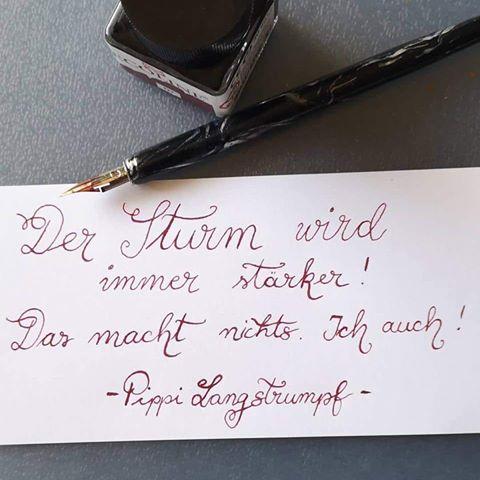 Der Sturm wird
immer stärker!
Das macht nichts. Ich auch!
- Pippi Langstrumpf -